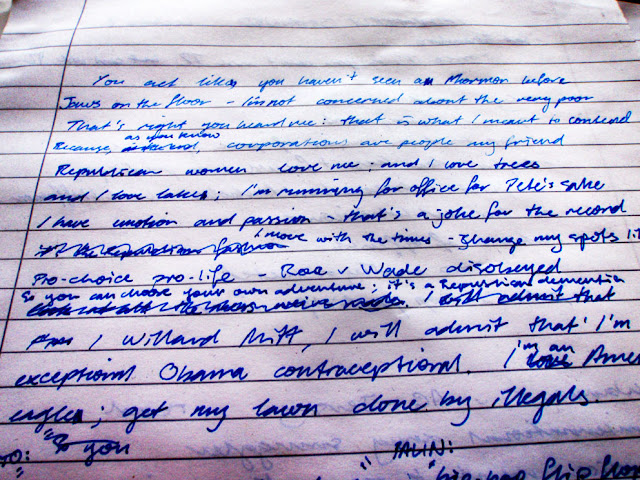 You act like you haven't seen a Mormon before
Jaws on the floor - I'm not concerned about the very poor
That's right you heard me: that is what I meant to contend
as you know
Because, corporations are people my friend
Republican women love me; and I love trees
and I love lakes; I'm running for office for Pete's sake
I have emotion and passion - that's a joke for the record
I move with the times - change my spots li
Pro-choice pro-life - Roe v Wade disobeyed
So you can choose your own adventure; it's a Republican dementia
I will admit that
I Willard Mitt, I will admit that I'm
exceptional Obama contraceptional. I'm an love Amer
eagle; get my lawn done by illegals.
TO: "So you " PALIN:
"hip-hop flip flop